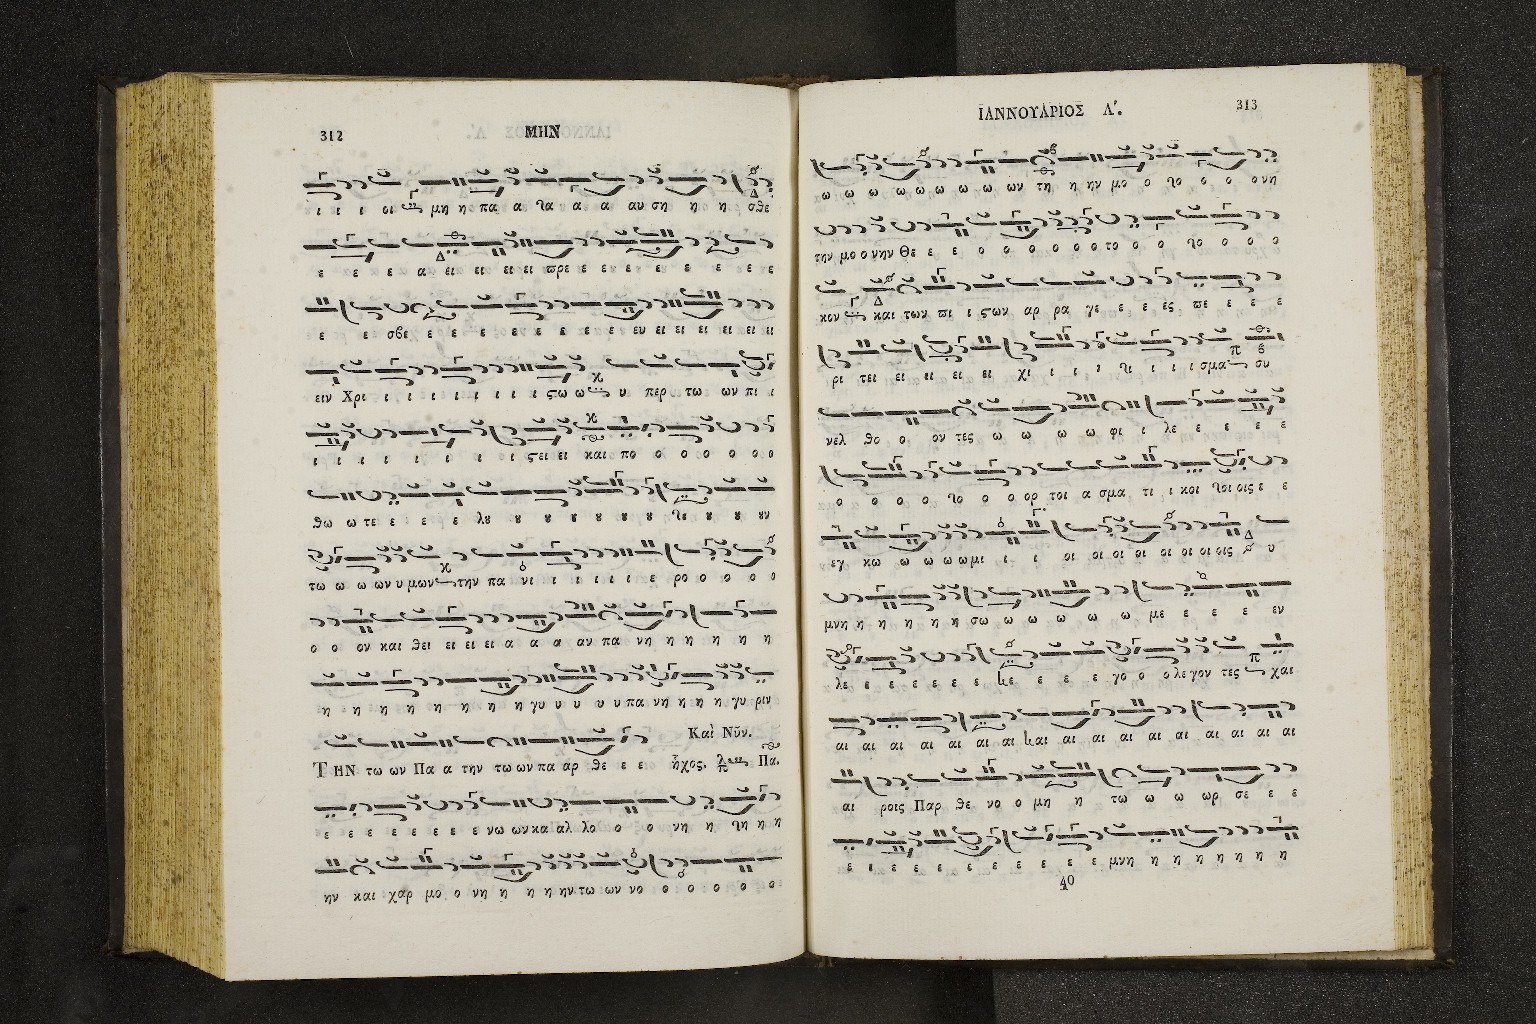 312 ΜΗΝ
ι ι ι οι μη η πα α τα α α αυ ση η η σθε
ε ε ε α ει ει ει ει πρε ε ε ε ε ε ε ε ε
ε ε σβε ε ε ε ε ε ε ε ε ευ ει ει ει ει ει ει
ειν Χρι ι ι ι ι ι ι ι ι ϛω ω υ περ τω ων πι ι
ι ι ι ι ι ι ι ι ι ϛει ει και πο ο ο ο ο ο ο
θω ω τε ε ε ε λȣ ȣ ȣ ȣ ȣ ȣ ȣ ȣ ȣ ȣ ȣν
τω ω ω ων υ μων την πα νι ι ι ι ι ι ε ρο ο ο ο ο
ο ο ον και θει ει ει ει α α α αν πα νη η η η η η
η η η η η η η η γυ υ υ υ υ πα νη η η η γυ ριν
Καὶ Νῦν.
ΤΗΝ τω ων Πα α την τω ων πα αρ θε ε ε ἦχος. Πα.
ε ε ε ε ε ε ε ε νω ων κα αλ λο ο ο νη η τη η η
ην και χαρ μο ο νη η η η ην τω ων νο ο ο ο ο ο
ΙΑΝΝΟΥΑΡΙΟΣ Λ΄. 313
ω ω ω ω ω ω ω ω ων τη η ην μο ο το ο ο ο νη
την μο ο νην Θε ε ε ο ο ο ο ο ο το ο ο το ο ο ο
κον και των πι ι ϛων αρ ρα γε ε ε ε ες πε ε ε ε
ρι τει ει ει ει ει χι ι ι ι τι ι ι ι σμα συ
νελ θο ο ον τες ω ω ω ω φι ι λε ε ε ε ε
ο ο ο ο το ο ο ορ τοι α σμα τι ι κοι τοι οις ε ε
εγ κω ω ω ω ω μι ι ι οι οι οι οι οι οι οι οις υ
μνη η η η η η σω ω ω ω ω ω με ε ε ε εν
λε ε ε ε ε ε ε ε ε ε ε γο ο ο λε γον τες χαι
αι αι αι αι αι αι αι αι αι αι αι αι αι αι αι αι
αι ροις Παρ θε νο ο μη η τω ω ω ωρ σε ε ε
ε ε ε ε ε ε ε ε ε ε ε μνη η η η η η η η
40